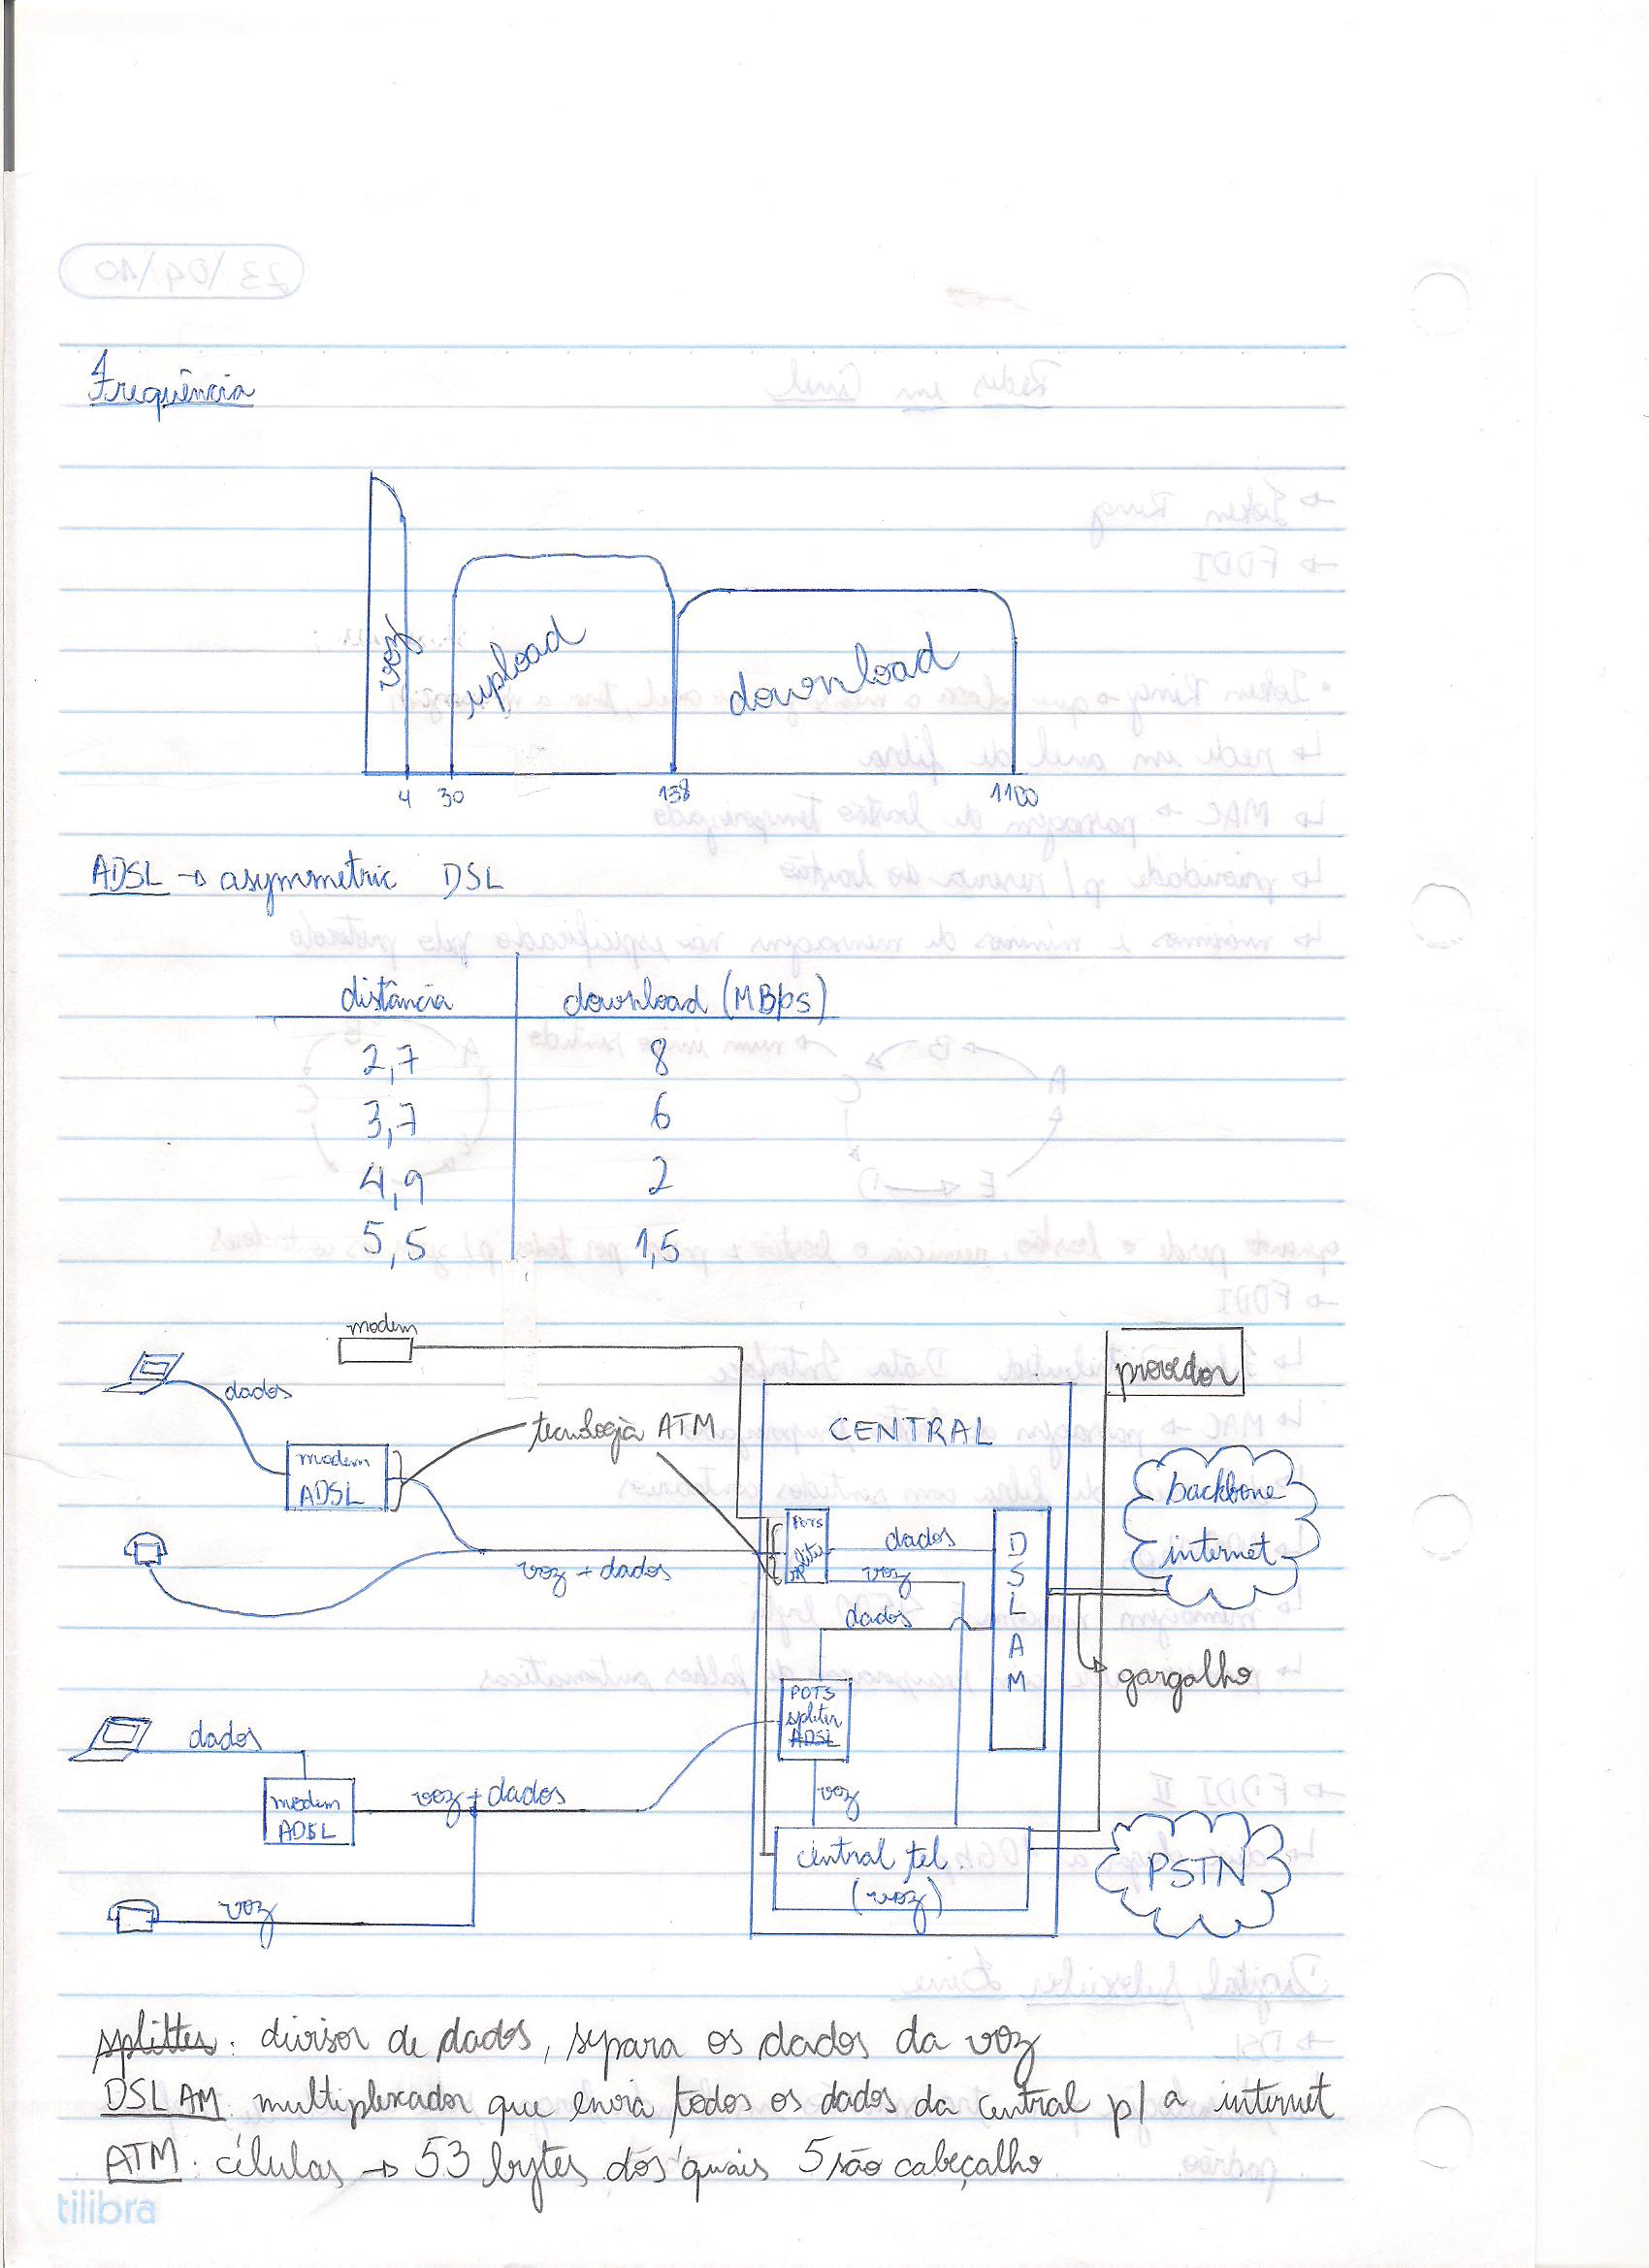 Frequência
voz
upload
download
4 30 138 1100
ADSL → asymmetric DSL
distância download (MBps)
2,7 8
3,7 6
4,9 2
5,5 1,5
modem
provedor
dados
tecnologia ATM
CENTRAL
modem
ADSL
backbone
internet
POTS
dados
DSLAM
voz + dados
voz
dados
gargalho
POTS
spliter
ADSL
dados
voz + dados
voz
modem
ADSL
central tel.
(voz)
PSTN
voz
splitter: divisor de dados, separa os dados da voz
DSLAM: multiplexador que envia todos os dados da central p/ a internet
ATM: células → 53 bytes dos quais 5 são cabeçalho
tilibra